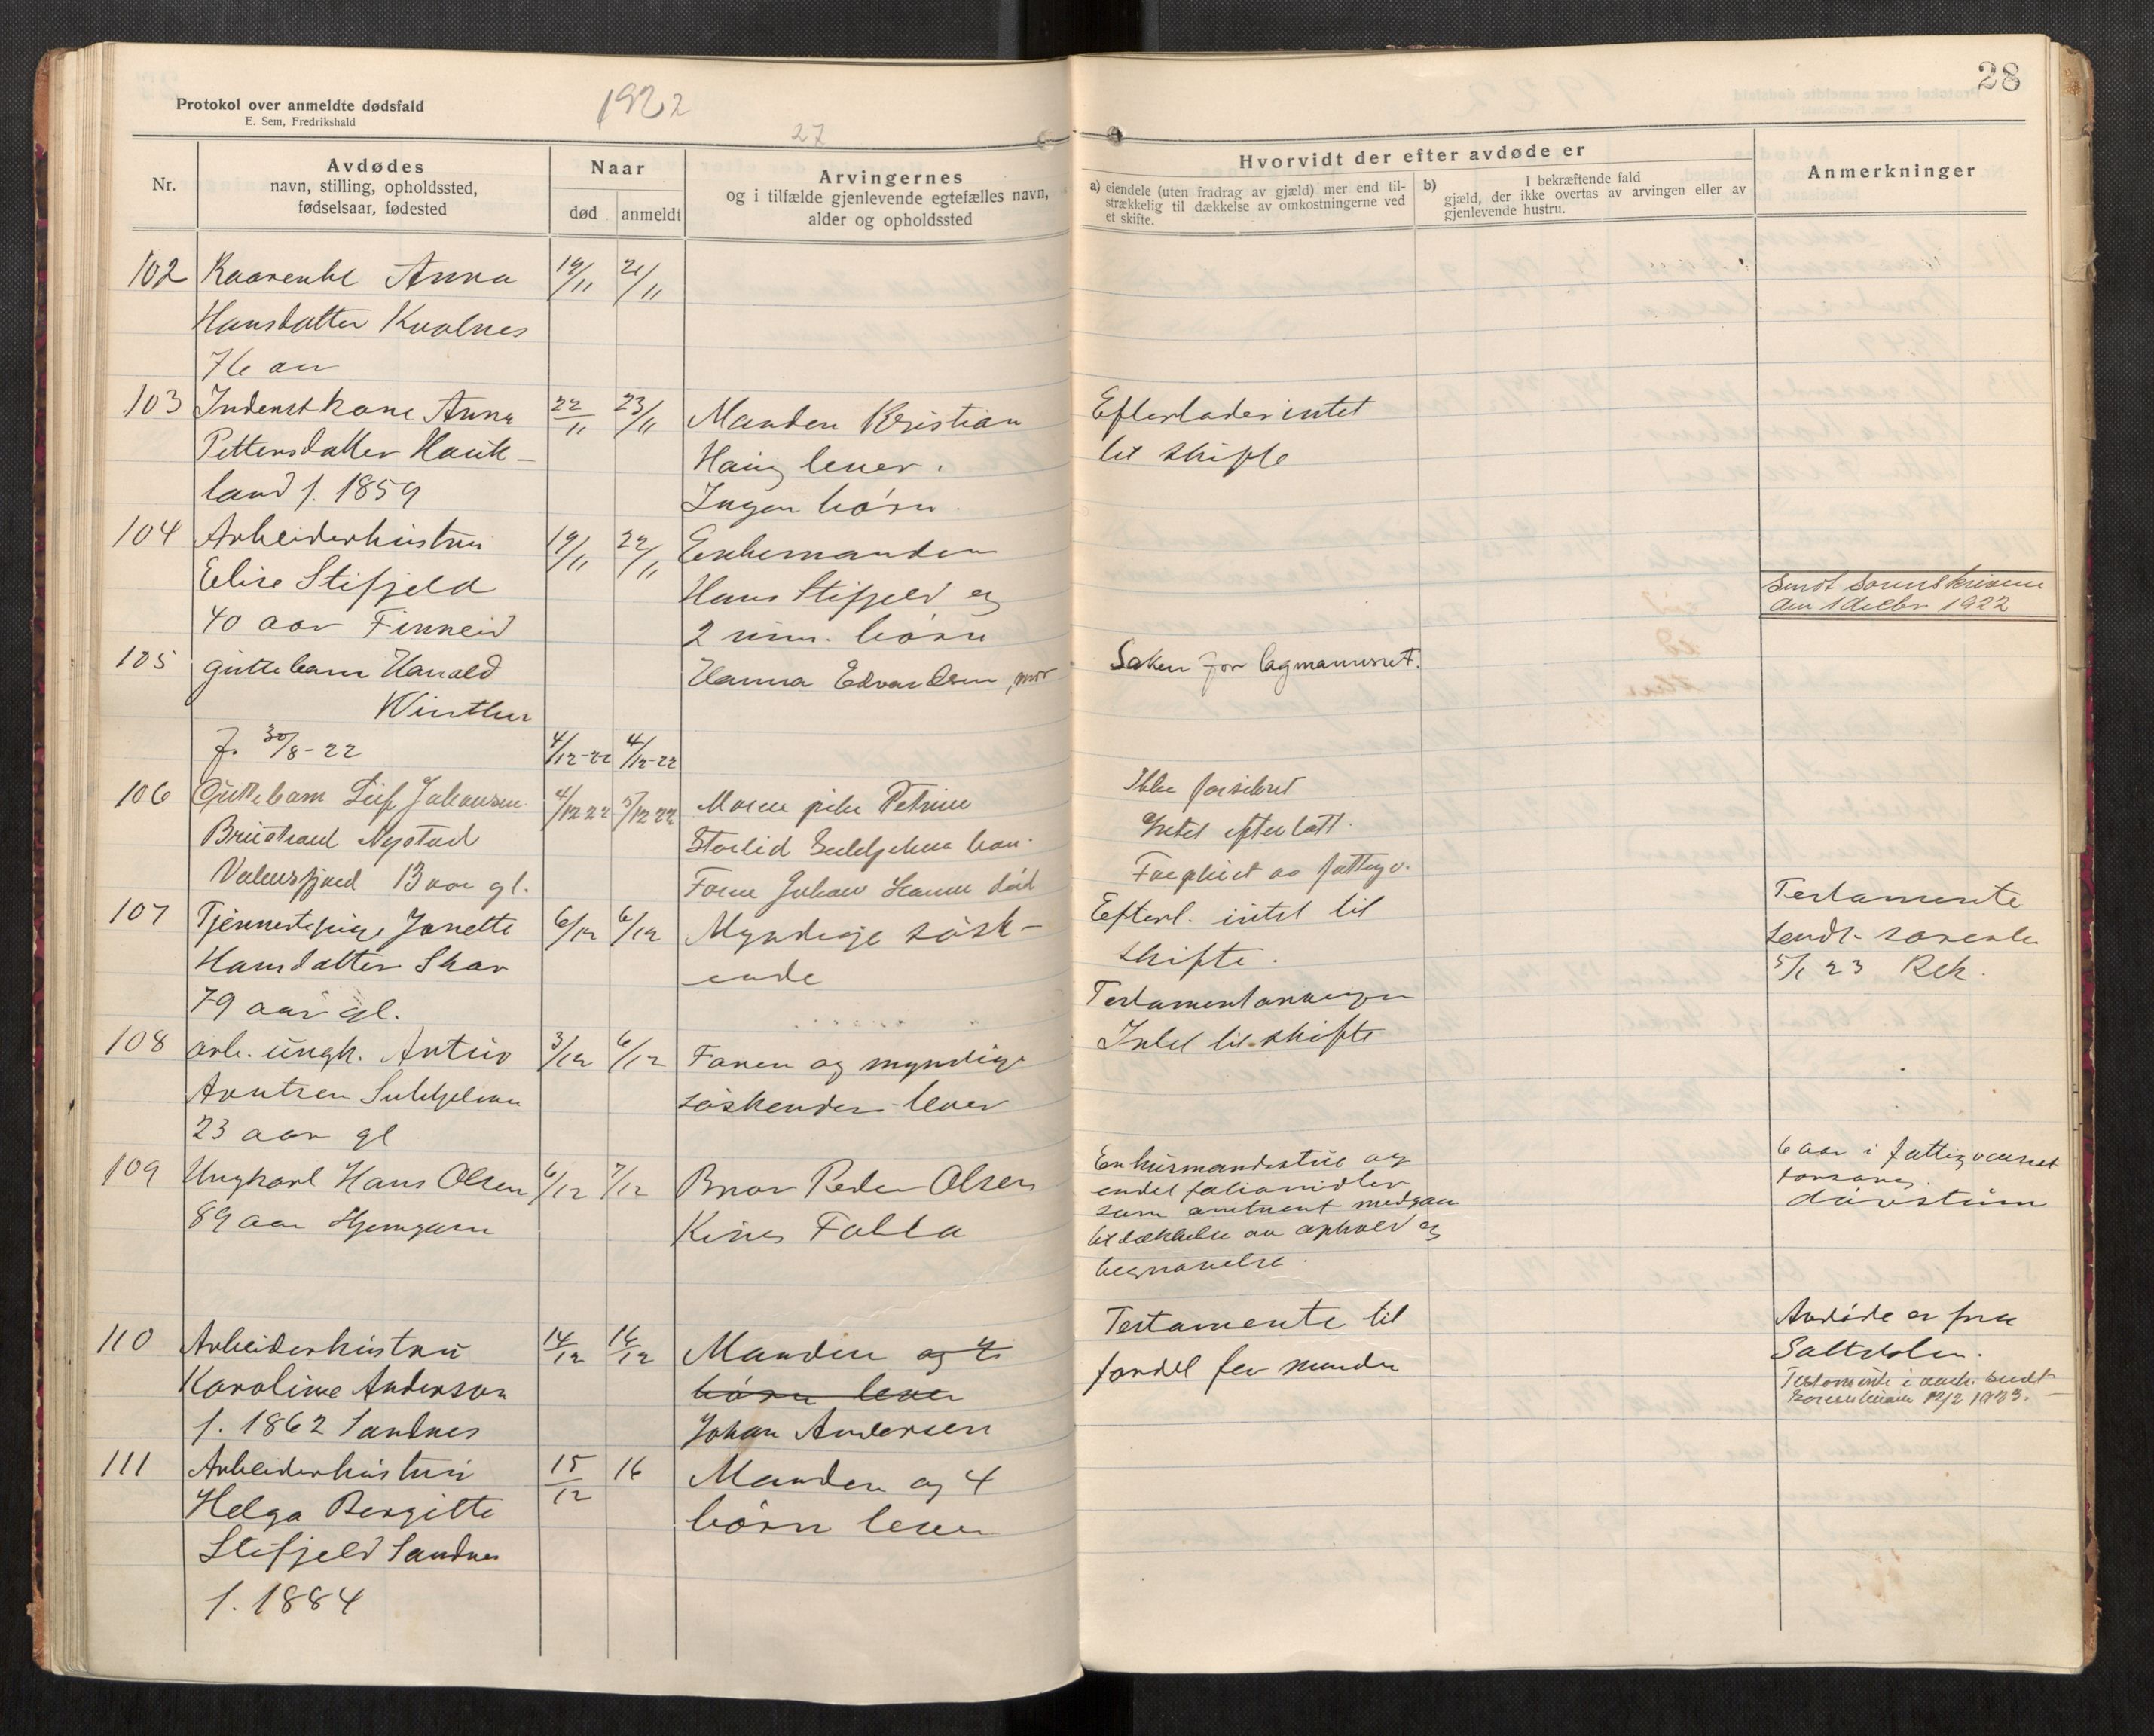 28
Protokol over anmeldte dødsfald
E. Sem, Fredrikshald
1922
27
Nr.
Avdødes
navn, stilling, opholdssted,
fødselsaar, fødested
Naar
død
anmeldt
Arvingernes
og i tilfælde gjenlevende egtefælles navn,
alder og opholdssted
Hvorvidt der efter avdøde er
a) eiendele (uten fradrag av gjæld) mer end til-
strækkelig til dækkelse av omkostningerne ved
et skifte.
b) I bekræftende fald
gjæld, der ikke overtas av arvingen eller av
gjenlevende hustru.
Anmerkninger
102 Kaarenke Anna 19/11 21/11
Hansdatter Kvalnes
76 aar
103 Inderstkone Anna 22/11 23/11 Manden Kristian Efterlader intet
Pettersdatter Hauk- Haug lever. til skifte
land f. 1859 Ingen børn.
104 Arbeiderhustru 19/11 22/11 Enkemanden
Elise Stifjeld Hans Stifjeld og Sendt sorenskriveren
40 aar Finneid 2 um. børn den 1 decbr 1922
105 guttebarn Harald Hanna Edvardsen, mor Saken for lagmannsret.
Winther
f. 30/8-22 4/12-22 4/12-22
106 Guttebarn Leif Johansen 4/12 22 5/12 22 Moren pike Petrine Ikke
Brustrand Nystad Storlid Sulitjelma Intet efterlatt.
Valnesfjord 13 aar gl. Faren Johan Hansen død
107 Tjenestepige Janette 6/12 6/12 Myndige søsk- Efterl. intet til Testamente
Hansdatter Skar ende skifte. sendt sorenskr
79 aar gl. Testamentarvinger 5/1 23 Rek.
108 arb. ungk. Antin 3/12 6/12 Faren og myndige Intet til skifte
Arntsen Sulitjelma søskender lever
23 aar gl
109 Ungkarl Hans Olsen 6/12 7/12 Bror Peder Olsen En husmandsstue og 6 aar i fattigvæsenet
89 aar Hjemgam Kines Falla endel
som medgaar
til dækkelse av ophold og
begravelse.
110 Arbeiderhustru 14/12 16/12 Manden og 4 Testamente til Avdøde er fra
Karoline Anderson børn lever fordel for manden Saltdalen.
f. 1862 Sandnes Johan Andersen Testamente i sendt
Sorenskriveren 12/2 1923.
111 Arbeiderhustru 15/12 16 Manden og 4
Helga Bergitte børn lever
Stifjeld Sandnes
f. 1884